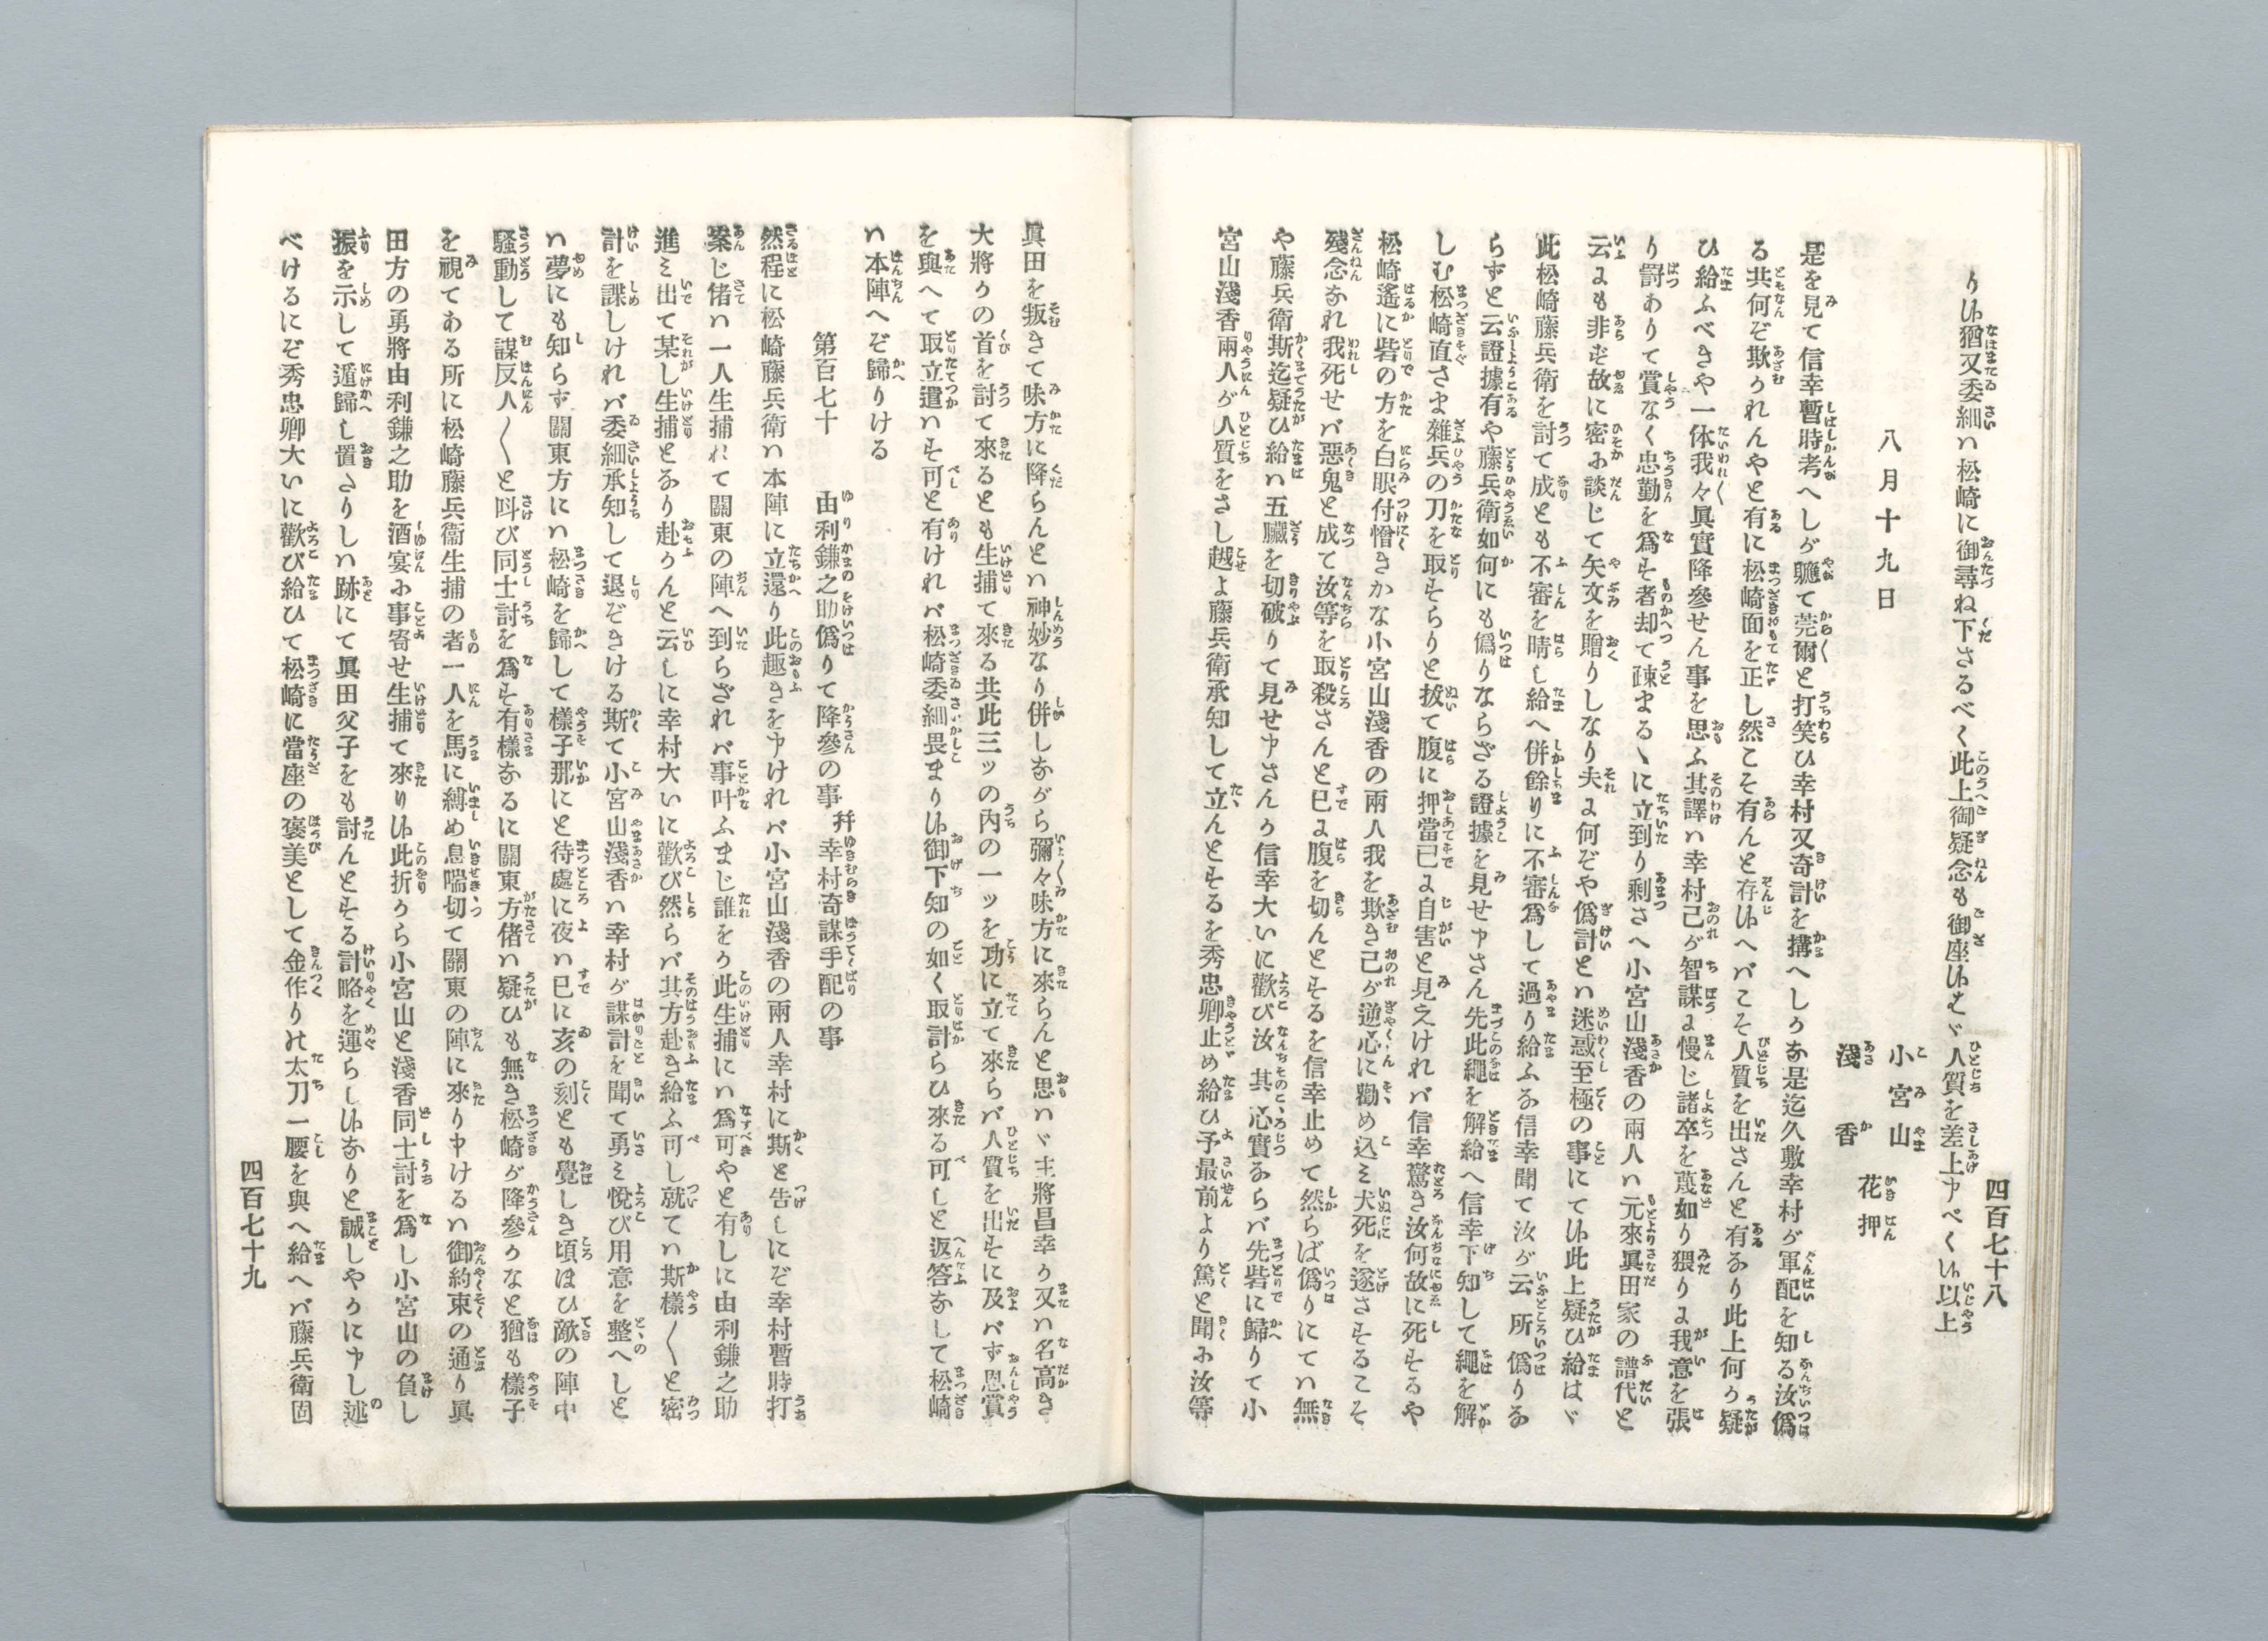 四百七十八
り候猶又委細ハ松崎に御尋ね下さるべく此上御疑念も御座候はゞ人質を差上申べく候以上
八月十九日
小宮山
花押
淺香
是を見て信幸暫時考へしが軈て莞爾と打笑ひ幸村又奇計を搆へしかな是迄久敷幸村が軍配を知る汝僞
る共何ぞ欺かれんやと有に松崎面を正し然こそ有んと存候へバこそ人質を出さんと有なり此上何か疑
ひ給ふべきや一体我々眞實降參せん事を思ふ其譯ハ幸村己が智謀に慢じ諸卒を蔑如り猥りに我意を張
り罸ありて賞なく忠勤を爲す者却て疎まるゝに立到り剩さへ小宮山淺香の兩人ハ元來眞田家の譜代と
云にも非ず故に密に談じて矢文を贈りしなり夫に何ぞや僞計とハ迷惑至極の事にて候此上疑ひ給はゞ
此松崎藤兵衛を討て成とも不審を晴し給へ併餘りに不審爲して過り給ふな信幸聞て汝が云所僞りな
らずと云證據有や藤兵衛如何にも僞りならざる證據を見せ申さん先此繩を解給へ信幸下知して繩を解
しむ松崎直さま雜兵の刀を取すらりと拔て腹に押當已に自害と見えけれバ信幸驚き汝何故に死するや
松崎遙に砦の方を白眼付憎きかな小宮山淺香の兩人我を欺き己が逆心に勸め込ミ犬死を遂さするこそ
殘念なれ我死せバ惡鬼と成て汝等を取殺さんと已に腹を切んとするを信幸止めて然らば僞りにてハ無
や藤兵衛斯迄疑ひ給ハ五臟を切破りて見せ申さんか信幸大いに歡び汝其心實ならバ先砦に歸りて小
宮山淺香兩人が人質をさし越よ藤兵衛承知して立んとするを秀忠卿止め給ひ予最前より篤と聞に汝等
眞田を叛きて味方に降らんとハ神妙なり併しながら彌々味方に來らんと思ハゞ主將昌幸か又ハ名高き
大將かの首を討て來るとも生捕て來る共此三ッの內の一ッを功に立て來らバ人質を出すに及バず恩賞
を與へて取立遣ハす可と有けれバ松崎委細畏まり候御下知の如く取計らひ來る可しと返答なして松崎
ハ本陣へぞ歸りける
第百七十　由利鎌之助僞りて降參の事　幷幸村奇謀手配の事
然程に松崎藤兵衛ハ本陣に立還り此趣きを申けれバ小宮山淺香の兩人幸村に斯と告しにぞ幸村暫時打
案じ偖ハ一人生捕れて關東の陣へ到らざれバ事叶ふまじ誰をか此生捕にハ爲可やと有しに由利鎌之助
進ミ出て某し生捕となり赴かんと云しに幸村大いに歡び然らバ其方赴き給ふ可し就てハ斯樣〱と密
計を諜しけれバ委細承知して退ぞきける斯て小宮山淺香ハ幸村が謀計を聞て勇ミ悅び用意を整へしと
ハ夢にも知らず關東方にハ松崎を歸して樣子那にと待處に夜ハ已に亥の刻とも覺しき頃ほひ敵の陣中
騷動して謀反人〱と呌び同士討を爲す有樣なるに關東方偖ハ疑ひも無き松崎が降參かなと猶も樣子
を視てある所に松崎藤兵衞生捕の者一人を馬に縛め息喘切て關東の陣に來り申けるハ御約束の通り眞
田方の勇將由利鎌之助を酒宴に事寄せ生捕て來り候此折から小宮山と淺香同士討を爲し小宮山の負し
振を示して遁歸し置さりしハ跡にて眞田父子をも討んとする計略を運らし候なりと誠しやかに申し述
べけるにぞ秀忠卿大いに歡び給ひて松崎に當座の褒美として金作りの太刀一腰を與へ給へバ藤兵衛固
四百七十九